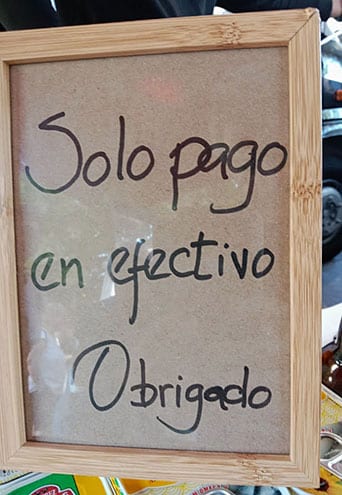 Solo pago
en efectivo
Obrigado